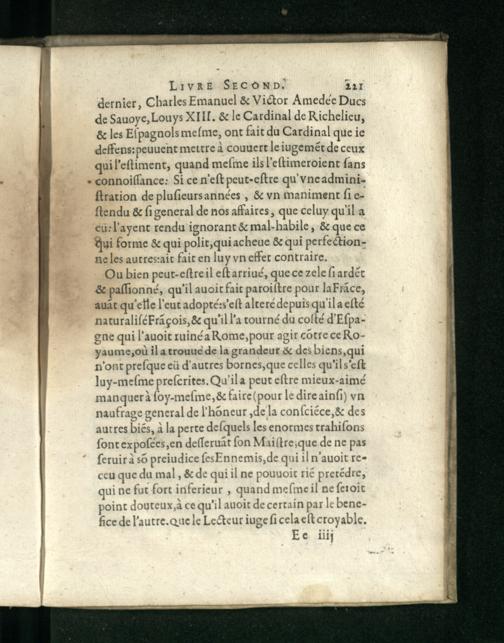 LIVRE SECOND. 221
dernier, Charles Emanuel & Victor Amedée Ducs
de Sauoye, Louys XIII. & le Cardinal de Richelieu,
& les Eſpagnols meſme, ont fait du Cardinal que ie
deffens: peuuent mettre à couuert le iugemẽt de ceux
qui l'eſtiment, quand meſme ils l'eſtimeroient ſans
connoiſſance: Si ce n'eſt peut-eſtre qu'vne admini-
ſtration de pluſieurs années, & vn maniment ſi e-
ſtendu & ſi general de nos affaires, que celuy qu'il a
eü: l'ayent rendu ignorant & mal-habile, & que ce
qui forme & qui polit, qui acheue & qui perfection-
ne les autres: ait fait en luy vn effet contraire.
Ou bien peut-eſtre il eſt arriué, que ce zele ſi ardẽt
& paſſionné, qu'il auoit fait paroiſtre pour la Frãce,
auãt qu'elle l'eut adopté: s'eſt alteré depuis qu'il a eſté
naturaliſé Frãçois, & qu'il l'a tourné du coſté d'Eſpa-
gne qui l'auoit ruiné a Rome, pour agir cõtre ce Ro-
yaume, où il a trouué de la grandeur & des biens, qui
n'ont preſque eü d'autres bornes, que celles qu'il s'eſt
luy-meſme preſcrites. Qu'il a peut eſtre mieux-aimé
manquer à ſoy-meſme, & faire (pour le dire ainſi) vn
naufrage general de l'hõneur, de la conſciẽce, & des
autres biẽs, à la perte deſquels les enormes trahiſons
ſont expoſées, en deſſeruãt ſon Maiſtre; que de ne pas
ſeruir à sõ preiudice ſes Ennemis, de qui il n'auoit re-
ceu que du mal, & de qui il ne pouuoit riẽ pretẽdre,
qui ne fut fort inferieur, quand meſme il ne ſeroit
point douteux, à ce qu'il auoit de certain par le bene-
fice de l'autre. Que le Lecteur iuge ſi cela eſt croyable.
Ee iiij